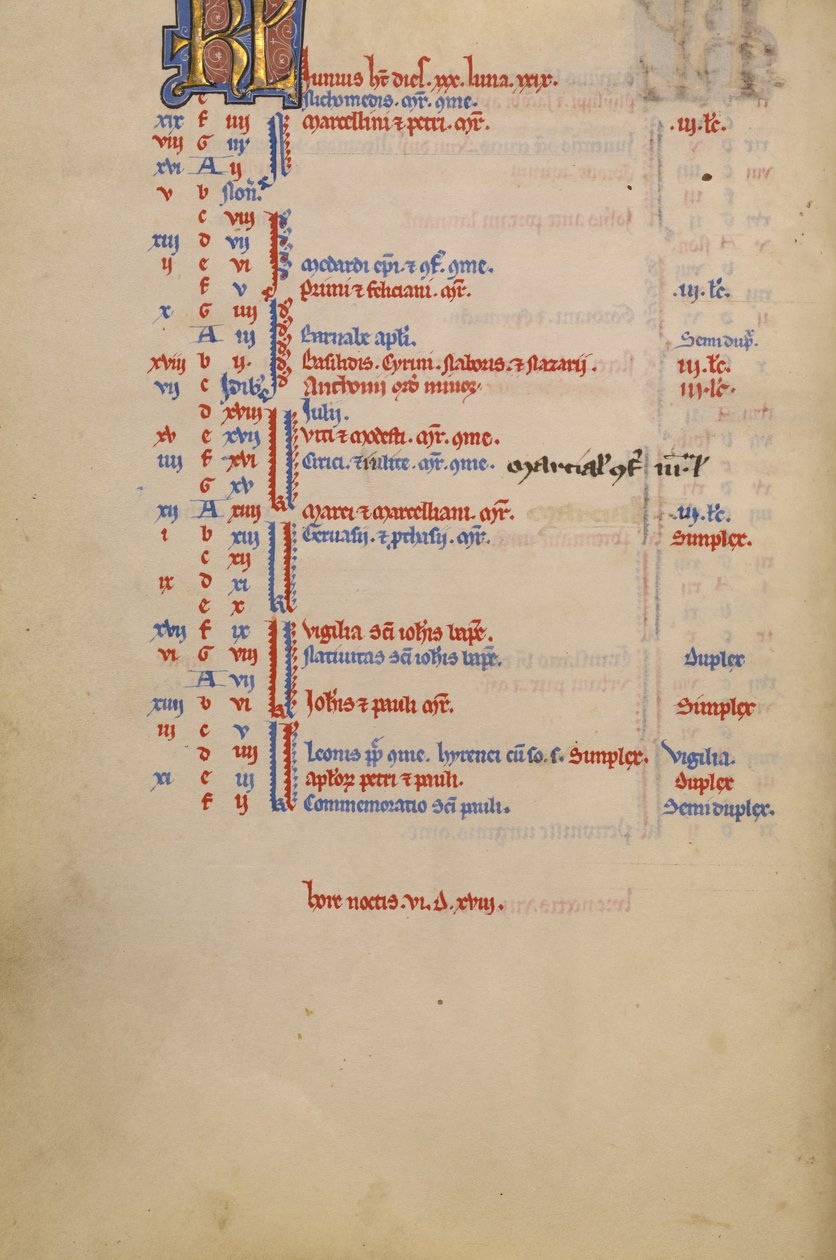 KL Junius ht dies. xxx. luna. xxix.
e Nichomedis. mr̄. 9me.
xix f iiii marcellini ⁊ petri. mr̄. .iii. lc̄.
viii G iii
xvi A ii
v b Non̄.
c viii
xiii d vii
ii e vi medardi epī. ⁊ 9f. 9me.
f v Primi ⁊ feliciani. mr̄. .iii. lc̄.
x G iiii
A iii Barnabe apl̄i. Semidup̄.
xviii b ii. Basilidis. Cyrini. Naboris. ⁊ Nazarij. iii. lc̄.
vii c Idib̄ Anthonii ord̄ minoꝝ. iii. lc̄.
d xviii Julii.
xv e xvii Viti ⁊ modesti. mr̄. 9me.
iiii f xvi Cirici. ⁊ iulite. mr̄. 9me. marcial' 9f̄ iii. l'
G xv
xii A xiiii marci ⁊ marcelliani. mr̄. .iii. lc̄.
i b xiii Geruasii. ⁊ ꝓthasii. mr̄. Simplex.
c xii
ix d xi
e x
xvii f ix Vigilia sc̄i ioh̄is bapt̄e.
vi G viii Natiuitas sc̄i ioh̄is bapt̄e. Duplex
A vii
xiiii b vi Joh̄is ⁊ pauli mr̄. Simplex
iii c v
d iiii Leonis pp̄ 9me. hyrenei cū so. s. Simplex. Vigilia.
xi e iii apl̄oꝝ petri ⁊ pauli. Duplex
f ii Commemoratio sc̄i pauli. Semiduplex.
Hore noctis. vi. d. xviii.